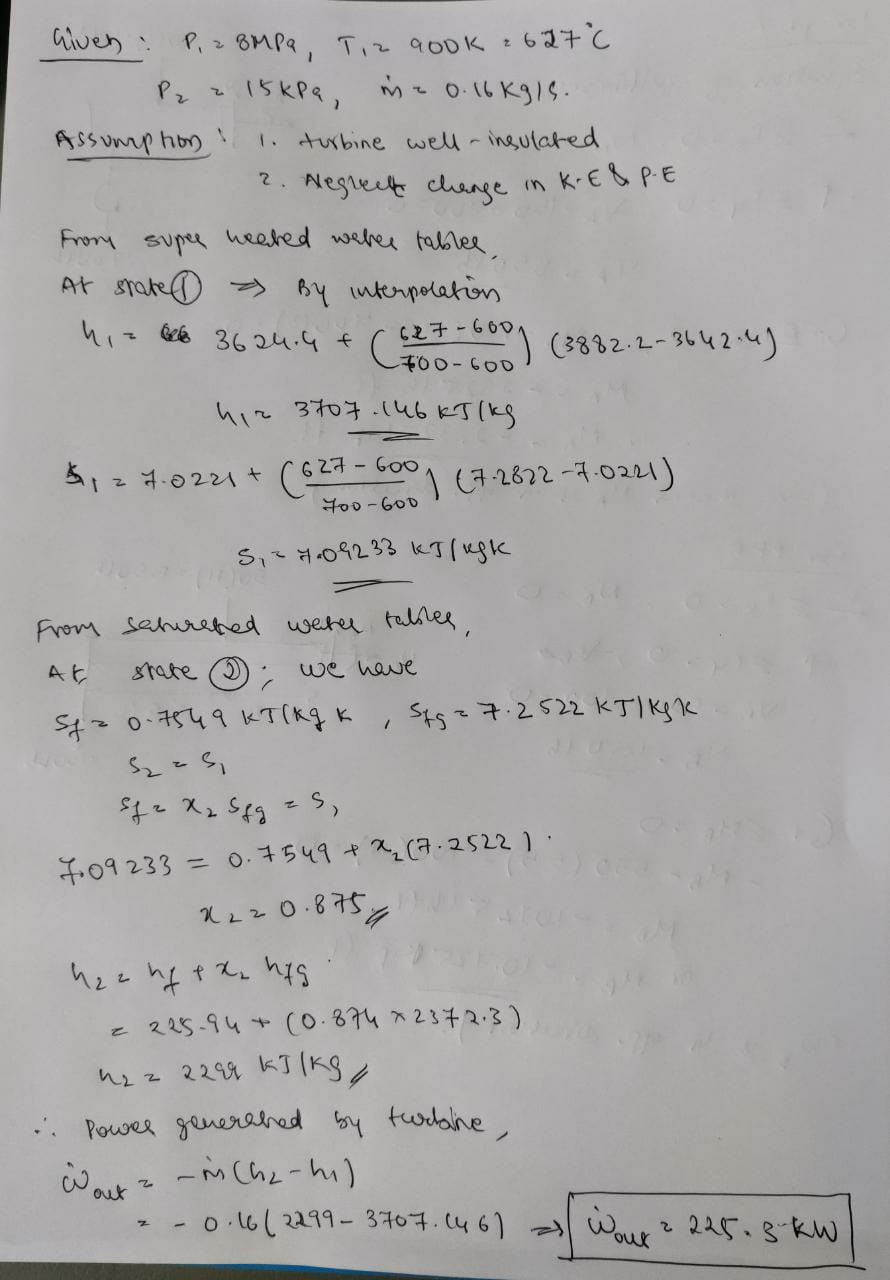 Given : P₁ = 8MPa, T₁ = 900K = 627°C
P₂ = 15kPa, ṁ = 0.16 Kg/s.
Assumption : 1. turbine well-insulated
2. Neglect change in K.E & P.E
From super heated water tables,
At state ① ⇒ By interpolation
h₁ = 3624.4 + ((627-600)/(700-600)) (3882.2-3642.4)
h₁ = 3707.146 KJ/kg
s₁ = 7.0221 + ((627-600)/(700-600)) (7.2822-7.0221)
S₁ = 7.09233 KJ/kgK
From saturated water tables,
At state ②; we have
Sf = 0.7549 KJ/kg K, Sfg = 7.2522 KJ/KgK
S₂ = S₁
Sf = x₂ Sfg = S₁
7.09233 = 0.7549 + x₂(7.2522).
x₂ = 0.875
h₂ = hf + x₂ hfg.
= 225.94 + (0.874 × 2372.3)
h₂ = 2299 KJ/Kg
∴ Power generated by turbine,
Ẇout = -ṁ(h₂-h₁)
= -0.16(2299-3707.146) ⇒ Ẇout = 225.3 KW